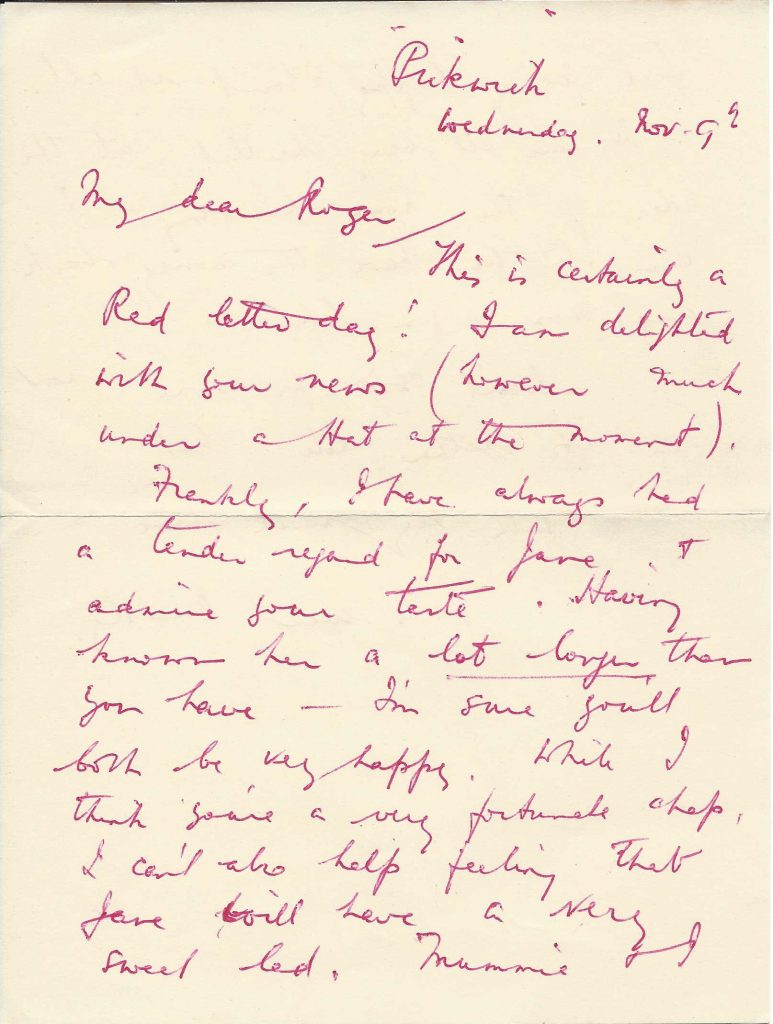 Wednesday. Nov. 9th
My dear Roger
This is certainly a
Red letter day! I am delighted
with your news (however much
under a Hat at the moment).
Frankly, I have always had
a tender regard for Jane &
admire your taste. Having
known her a lot longer than
you have — I'm sure you'll
both be very happy. While I
think you're a very fortunate chap,
I can't also help feeling that
Jane will have a very
sweet lad. Mummie & I